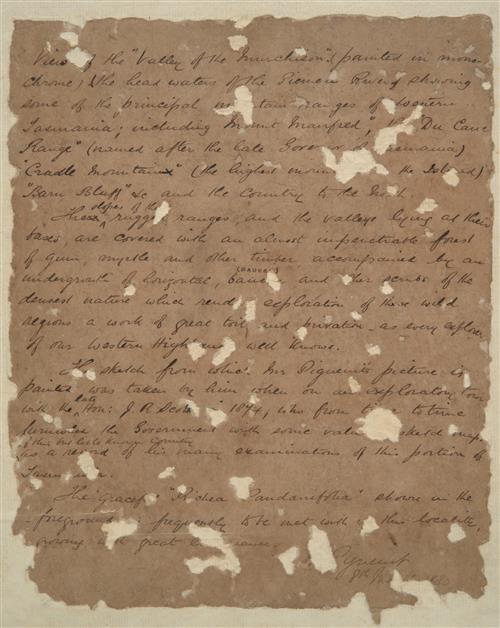 View of the "Valley of the Murchison", painted in mono-
chrome; the head waters of the Pieman River, showing
some of the principal mountain ranges of Western
Tasmania; including "Mount Manfred", the "Du Cane
Range" (named after the late Governor of Tasmania)
"Cradle Mountain" (the highest moun the Island)
"Barn Bluff" &c and the Country to the
slopes of the
These rugged ranges, and the valleys lying at their
bases, are covered with an almost impenetrable forest
of Gum, myrtle and other timber accompanied by an
(BAUERA)
undergrowth of horizontal, bauera and her scrubs of the
densest nature which rend exploration of these wild
regions a work of great toil and privation - as every explorer
of our Western High well knows.
The sketch from which Mr Piguenit's picture is
painted was taken by him when on an exploratory tour
late
with the Hon: J. R. Scott in 1874, who from time to time
furnished the Government with some valu sketch maps
of this but little known Country
as a record of his many examinations of this portion of
Tasmania.
The Graceful "Richea Pandanifolia" shown in the
foreground is frequently to be met with in this locality,
growing with great luxuriance.
Piguenit